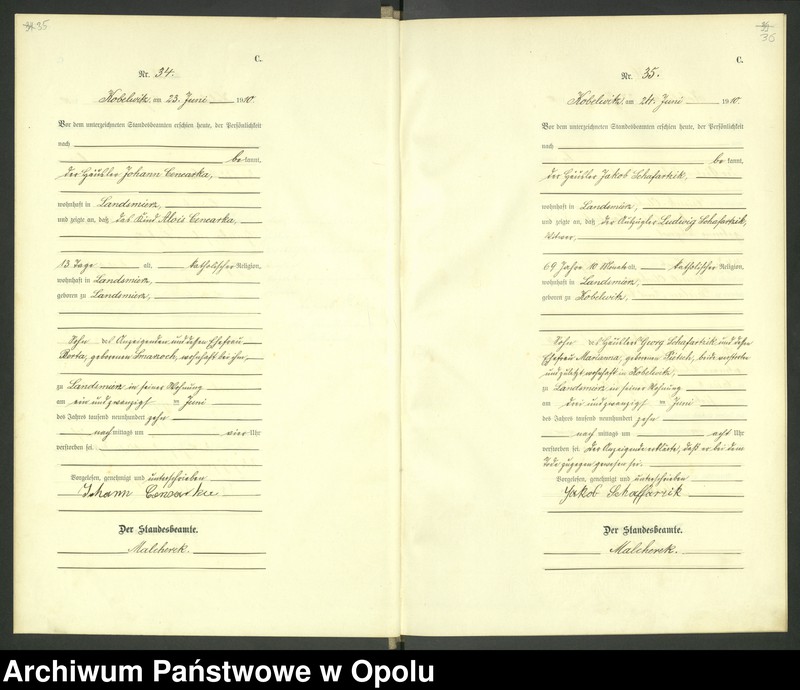 35
C.
Nr. 34.
Kobelwitz, am 23. Juni 1910.
Vor dem unterzeichneten Standesbeamten erschien heute, der Persönlichkeit
nach
be kannt,
der Häusler Johann Cencarka,
wohnhaft in Landsmierz,
und zeigte an, daß das Kind Alois Cencarka,
13 Tage alt, katholischer Religion,
wohnhaft in Landsmierz,
geboren zu Landsmierz,
Sohn des Anzeigenden und dessen Ehefrau
geborenen wohnhaft bei ihm,
zu Landsmierz in seiner Wohnung
am ein und zwanzigsten Juni
des Jahres tausend neunhundert zehn
nach mittags um vier Uhr
verstorben sei.
Vorgelesen, genehmigt und unterschrieben
Johann Cencarka
Der Standesbeamte.
Malcherek.
36
C.
Nr. 35.
Kobelwitz, am 24. Juni 1910.
Vor dem unterzeichneten Standesbeamten erschien heute, der Persönlichkeit
nach
be kannt,
der Häusler Jakob Schafartzik,
wohnhaft in Landsmierz,
und zeigte an, daß der Auszügler Ludwig Schafartzik,
Witwer,
69 Jahre 10 Monate alt, katholischer Religion,
wohnhaft in Landsmierz,
geboren zu Kobelwitz,
Sohn des Häuslers Georg Schafartzik und dessen
Ehefrau Marianna, geborenen beide verstorben
und zuletzt wohnhaft in Kobelwitz,
zu Landsmierz in seiner Wohnung
am drei und zwanzigsten Juni
des Jahres tausend neunhundert zehn
nach mittags um acht Uhr
verstorben sei. Der Anzeigende erklärte, daß er bei dem
Tode zugegen gewesen sei.
Vorgelesen, genehmigt und unterschrieben
Jakob Schaffarzik
Der Standesbeamte.
Malcherek.
Archiwum Państwowe w Opolu